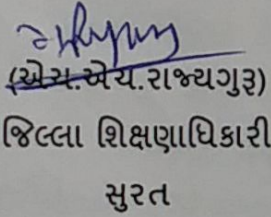 (એચ.એચ.રાજ્યગુરૂ)
જિલ્લા શિક્ષણાધિકારી
સુરત